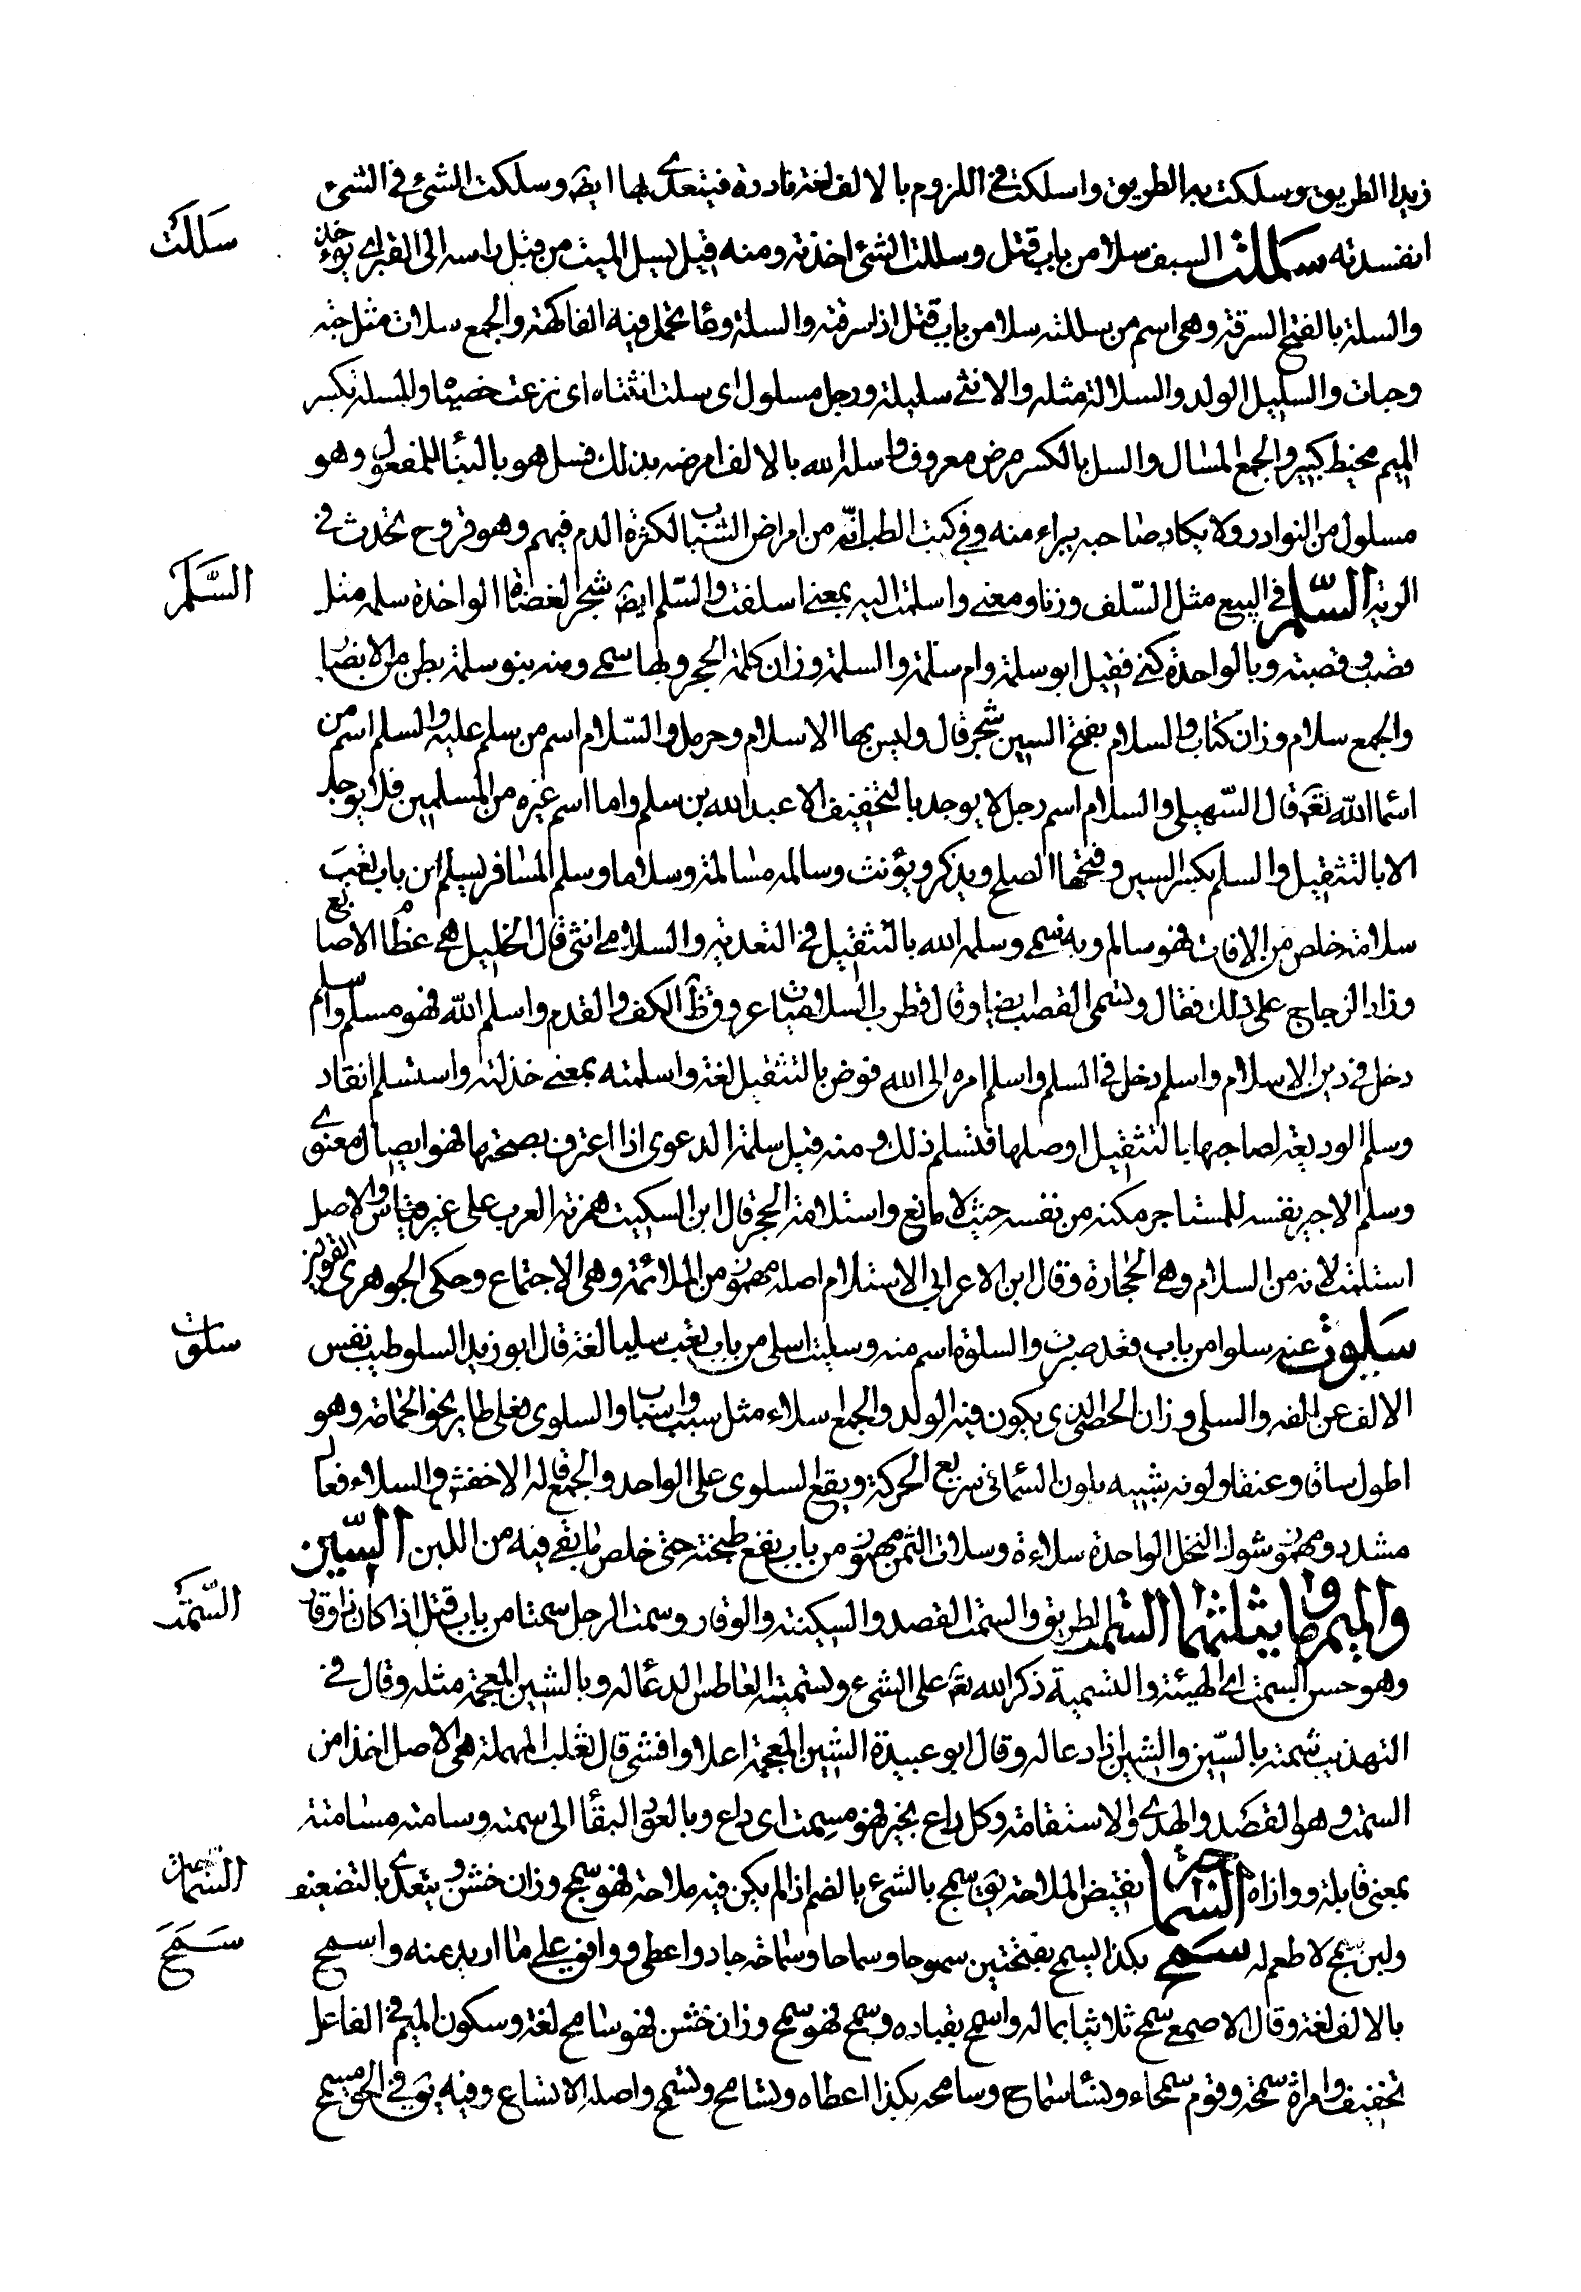 زيدا الطريق وسلكت به الطريق واسلكت في اللزوم بالالف لغة نادرة فيتعدى بها ايضا وسلكت الشئ في الشئ
انفسدته سللت السيف سلا من باب قتل وسللت الشئ اخذته ومنه قيل يسل الميت من قبل راسه الى القبر اى يؤخذ
سللت
والسلة بالفتح السرقة وهى اسم من سللته سلا من باب قتل اذا سرقته والسلة وعاء تحمل فيه الفاكهة والجمع سلات مثل جنة
وجنات والسليل الولد والسلالة مثله والانثى سليلة ورجل مسلول اى سلت انثتاه اى نزعت خصيتاه والمسلة بكسر
الميم مخيط كبير والجمع المسال والسل بالكسر مرض معروف واسله الله بالالف امرضه بذلك فسل هو بالبناء للمفعول وهو
مسلول من النوادر ولا يكاد صاحبه يبراء منه وفي كتب الطب انه من امراض الشباب لكثرة الدم فيهم وهو قروح تحدث في
الرية السلم في البيع مثل السلف وزنا ومعنى واسلمت اليه بمعنى اسلفت والسلم ايضا شجر العضاه الواحدة سلمة مثل
السلم
قصب وقصبة وبالواحدة كنى فقيل ابو سلمة وام سلمة والسلمة وزان كلمة الحجر وبها سمى ومنه بنو سلمة بطن من الانصار
والجمع سلام وزان كتاب والسلام بفتح السين شجر قال وليس بها الاسلام وحرمل والسلام اسم من سلم عليه والسلم اسم من
اسماء الله تعه قال السهيلى والسلام اسم رجل لا يوجد بالتخفيف الا عبد الله بن سلم واما اسم غيره من المسلمين فلا يوجد
الا بالتثقيل والسلم بكسر السين وفتحها الصلح ويذكر ويؤنث وسالمه مسالمة وسلاما وسلم المسافر يسلم من باب تعب
سلامة خلص من الافات فهو سالم وبه سمى وسلمه الله بالتثقيل في التعدية والسلامى انثى قال الخليل هى عظام الاصابع
وزاد الزجاج على ذلك فقال وتسمى القصب ايضا وقال قطرب السلاميات عروق ظاهر الكف والقدم واسلم الله فهو مسلم واسلم
دخل في دين الاسلام واسلم دخل في السلم واسلم امره الى الله فوض بالتثقيل لغة واسلمته بمعنى خذلته واستسلم انقاد
وسلم الوديعة لصاحبها بالتثقيل اوصلها فتسلم ذلك ومنه قيل سلمة الدعوى اذا اعترف بصحتها فهو ايصال معنوى
وسلم الاجير نفسه للمستاجر مكنه من نفسه حيث لا مانع واستلامة الحجر قال ابن السكيت همزته العرب على غير قياس والاصل
استلمت لانه من السلام وهى الحجارة وقال ابن الاعرابي الاستلام اصله مهموز من الملائمة وهى الاجتماع وحكى الجوهرى القولين
سلوت عنه سلوا من باب قعد صبرت والسلوة اسم منه وسليت اسلى من باب تعب سليا لغة قال ابو زيد السلو طيب نفس
سلوت
الالف عن الفه والسلى وزان الحصى الذى يكون فيه الولد والجمع اسلاء مثل سبب واسباب والسلوى فعلى طاير نحو الحمامة وهو
اطول ساقا وعنقا ولونه شبيه بلون السمانى سريع الحركة ويقع السلوى على الواحد والجمع قاله الاخفش والسلاء فعال
مشدد ومهموز شوك النخل الواحدة سلاءة وسلات السمن مهموز من باب نفع طبخته حتى خلص ما بقى فيه من اللبن السين
والميم وما يثلثهما السمت الطريق والسمت القصد والسكينة والوقار وسمت الرجل سمتا من باب قتل اذا كان ذا وقار
السمت
وهو حسن السمت اى الهيئة والتسمية ذكر الله تعه على الشئ وتسميت العاطس الدعا له وبالشين المعجمة مثله وقال في
التهذيب سمته بالسين والشين اذا دعا له وقال ابو عبيدة الشين المعجمة اعلا وافشى قال ثعلب المهملة هى الاصل اخذا من
السمت وهو القصد والهدى والاستقامة وكل داع بخير فهو مسمت اى داع وبالعود البقاء الى سمته وسامته مسامتة
بمعنى قابلة ووازاه السماجة نقيض الملاحة يق سمج بالشئ بالضم اذا لم يكن فيه ملاحة فهو سمج وزان خشن ويتعدى بالتضعيف
السماجة
ولبن سمج لا طعم له سمح بكذا يسمح بفتحتين سموحا وسماحا وسماحة جاد واعطى ووافق على ما اريد منه واسمح
سمح
بالالف لغة وقال الاصمعى سمح ثلاثيا بماله واسمح بقياده وسمح فهو سمح وزان خشن فهو سامح لغة وسكون الميم في الفاعل
تخفيف وامراة سمحة وقوم سمحاء ونساء سماح وسامحه بكذا اعطاه وتسامح وتسمح واصله الاتساع وفيه يق في الحق مسمح